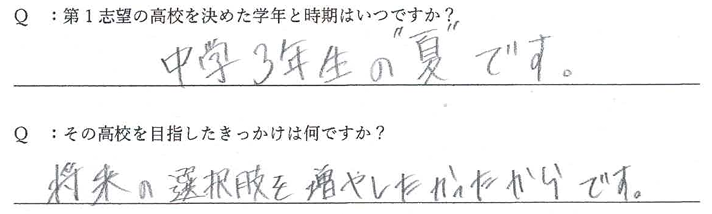 Q ：第１志望の高校を決めた学年と時期はいつですか？
中学3年生の"夏"です。
Q ：その高校を目指したきっかけは何ですか？
将来の選択肢を増やしたかったからです。